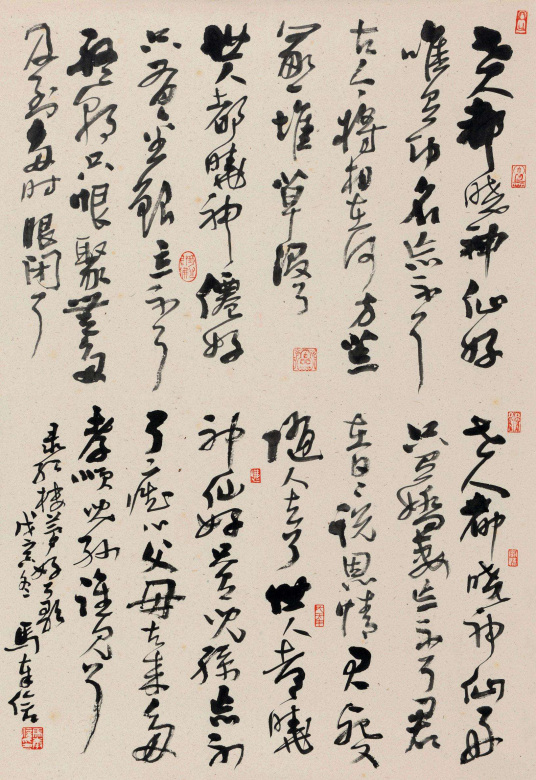 世人都晓神仙好
唯有功名忘不了
古今将相在何方荒
冢一堆草没了
世人都曉神僊好
只有金銀忘不了
终朝只恨聚無多
及到多时眼闭了
世人都晓神仙好
只有嬌妻忘不了君
在日日说恩情君死又
随人去了世人都曉
神仙好只有兒孫忘不
了痴心父母古来多
孝順兒孙谁见了
录红楼梦好了歌
戊寅冬 馬